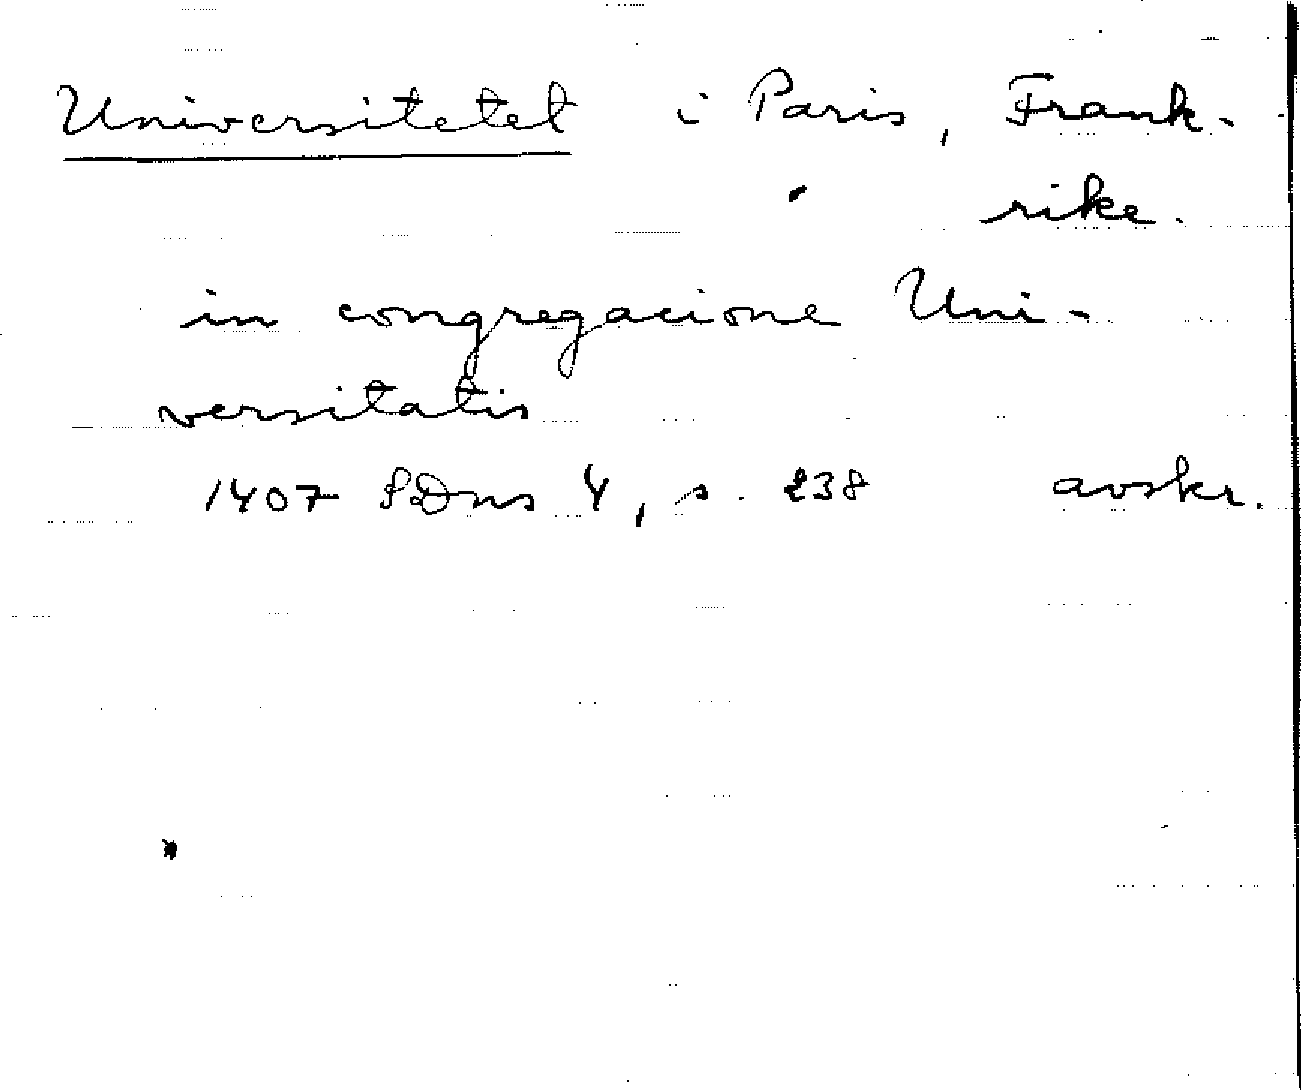 Universitetet i Paris, Frank-
rike.
in congregacione Uni-
versitatis
1407 SDns 4, s. 238 avskr.